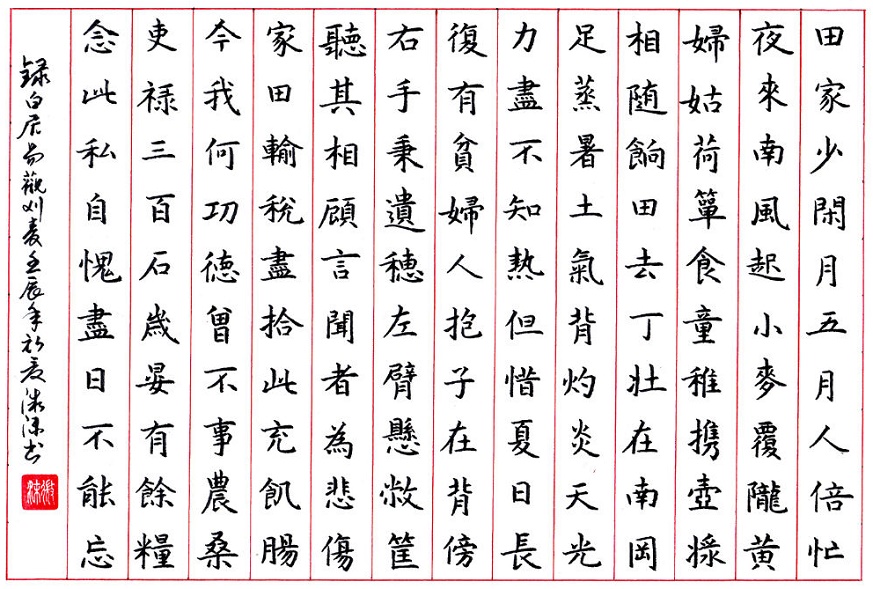 田家少閑月五月人倍忙
夜來南風起小麥覆隴黄
婦姑荷簞食童稚携壺漿
相随餉田去丁壯在南岡
足蒸暑土氣背灼炎天光
力盡不知熱但惜夏日長
復有貧婦人抱子在背傍
右手秉遺穗左臂懸敝筐
聽其相顧言聞者為悲傷
家田輸税盡拾此充飢腸
今我何功德曾不事農桑
吏禄三百石歲晏有餘糧
念此私自愧盡日不能忘
録白居易觀刈麦壬辰年初夏微沫书